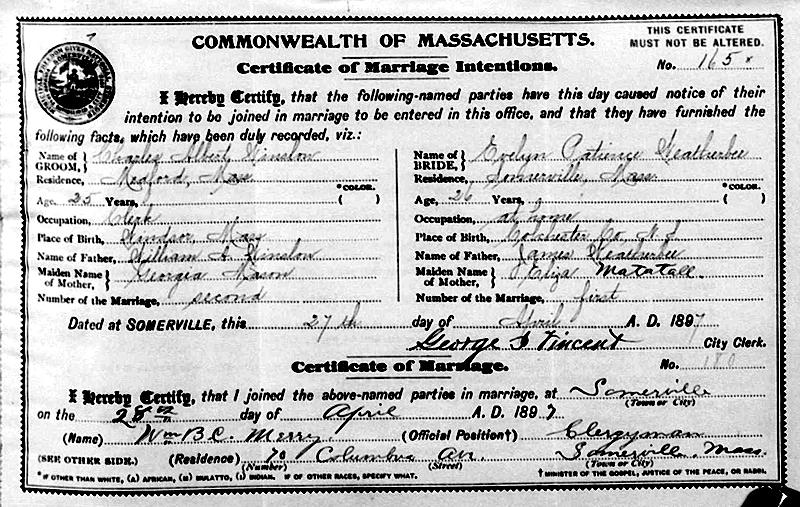 COMMONWEALTH OF MASSACHUSETTS.
THIS CERTIFICATE
MUST NOT BE ALTERED.
Certificate of Marriage Intentions.
No. 165
I Hereby Certify, that the following-named parties have this day caused notice of their
intention to be joined in marriage to be entered in this office, and that they have furnished the
following facts, which have been duly recorded, viz.:
Name of GROOM, Charles Albert Winslow
Residence, Medford, Mass
*COLOR.
Age, 25 Years, ( )
Occupation, Clerk
Place of Birth, Windsor, Mass
Name of Father, William Winslow
Maiden Name of Mother, Georgia Mason
Number of the Marriage, second
Name of BRIDE, Evelyn Patience Weatherbee
Residence, Somerville, Mass.
*COLOR.
Age, 26 Years, ( )
Occupation, at home
Place of Birth, Colchester Co, N.S
Name of Father, James Weatherbee
Maiden Name of Mother, Eliza Matatall.
Number of the Marriage, first
Dated at SOMERVILLE, this 27th day of April A. D. 1897
George I Vincent City Clerk.
Certificate of Marriage.
No. 180
I Hereby Certify, that I joined the above-named parties in marriage, at Somerville
(Town or City)
on the 28th day of April A. D. 1897
(Name) Wm B C. Merry (Official Position†) Clergyman
(SEE OTHER SIDE.) (Residence) 70 Columbus Av. Somerville, Mass.
(Number) (Street) (Town or City)
*IF OTHER THAN WHITE, (A) AFRICAN, (M) MULATTO, (I) INDIAN. IF OF OTHER RACES, SPECIFY WHAT.
† MINISTER OF THE GOSPEL, JUSTICE OF THE PEACE, OR RABBI.